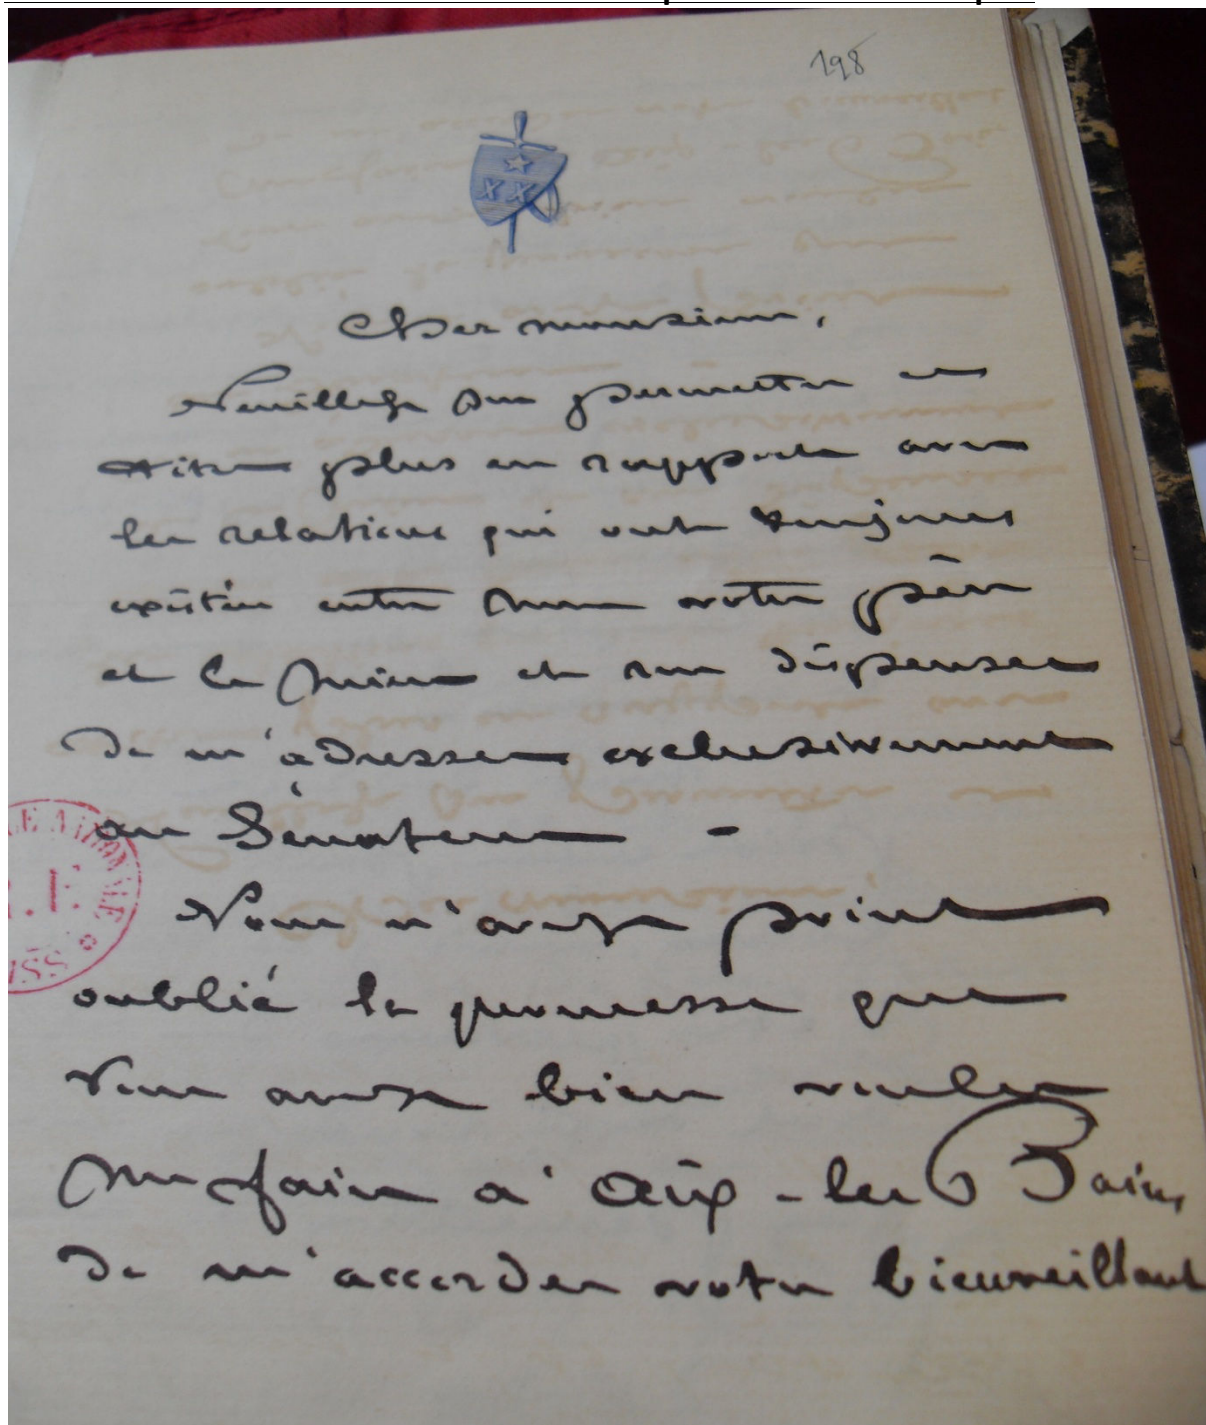 198
Cher monsieur,
Veuillez me permettre ce
titre plus en rapports avec
les relations qui ont toujours
existées entre votre père
et le mien et me dispenser
de m'adresser exclusivement
au Sénateur -
Vous n'avez point
oublié la promesse que
vous avez bien voulu
me faire à Aix-les Bains
de m'accorder votre bienveillant